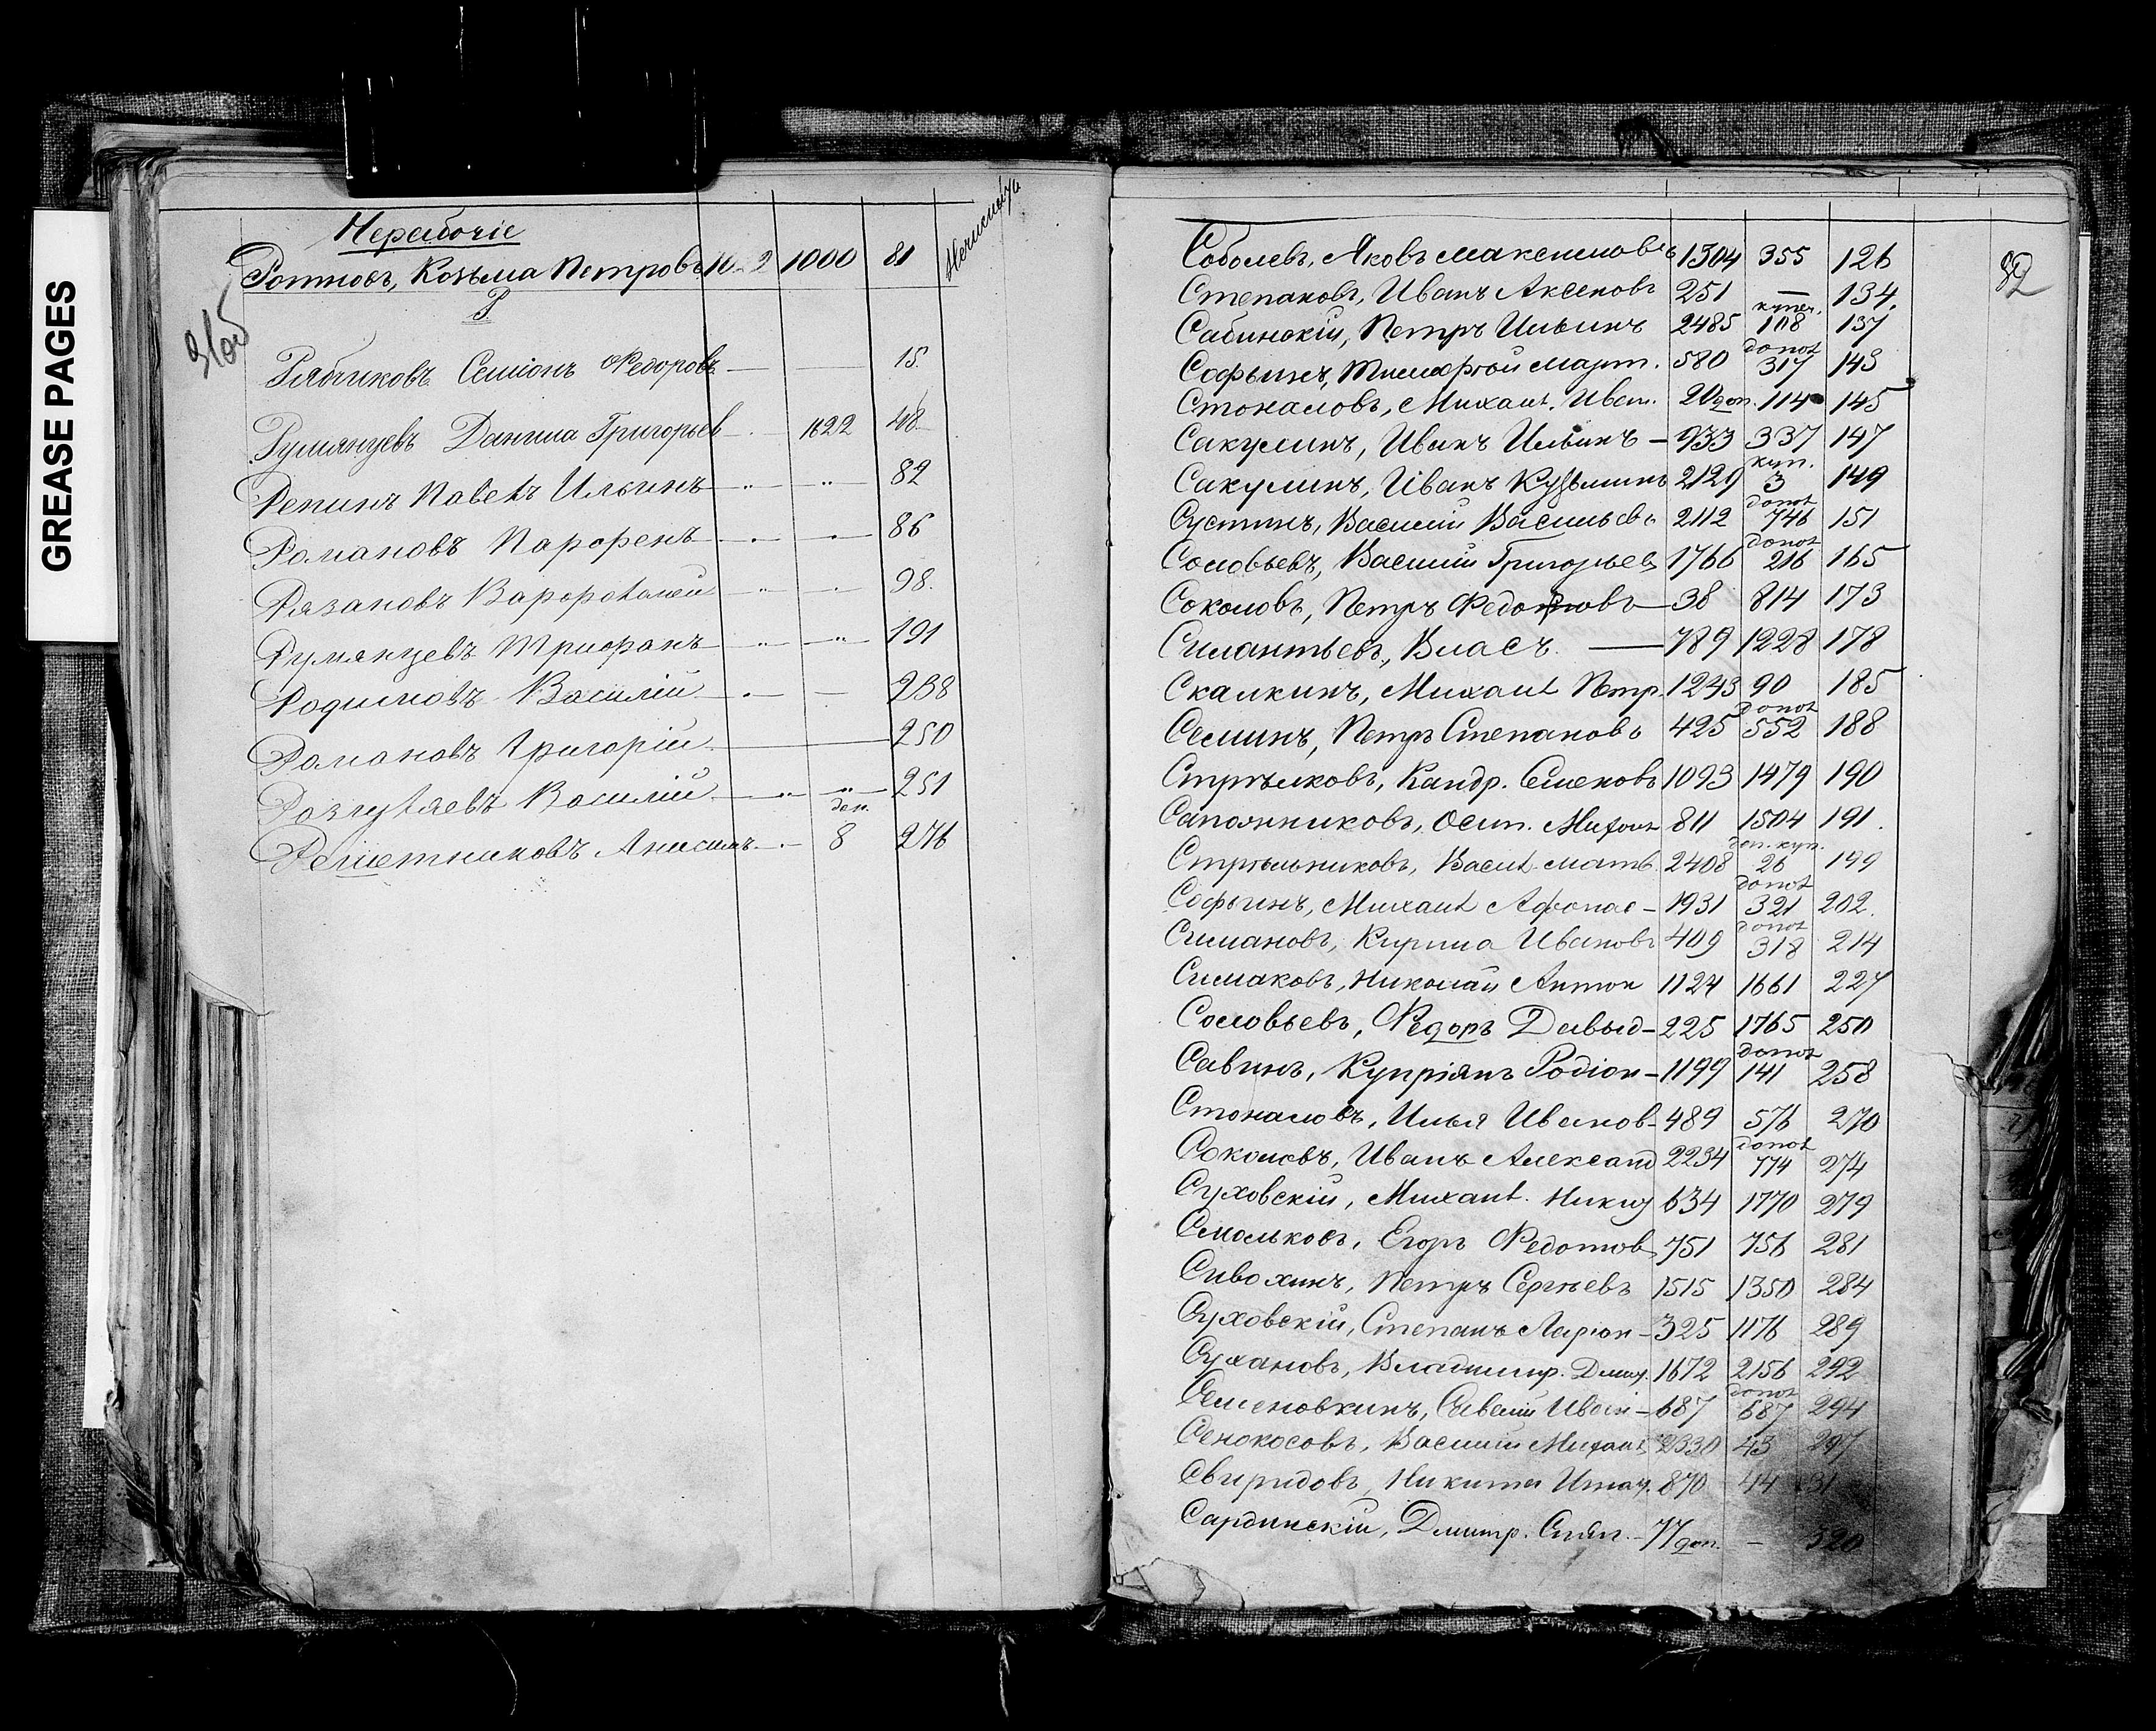 GREASE PAGES
31об
Нерабочіе
Ротновъ, Козьма Петровъ 1000 81
Р.
Рябчиковъ Семіонъ Ѳедоровъ — — 15.
Румянцевъ Данила Григорьев — 1622 48
Репинъ Павелъ Ильинъ — „ — „ — 82
Романовъ Парфенъ — „ — „ — 86
Рязановъ Варфоломей — „ — „ — 98.
Румянцевъ Трифанъ — „ — „ — 191
Родимовъ Василій — „ — — 238
Романовъ Григорій — 250
Розгуляевъ Василій — „ — „ — 251
доп.
Решетниковъ Анисимъ — 8 276
82
Соболевъ, Яковъ Максимовъ 1304 355 126
Степановъ, Иванъ Аксеновъ 251 — 134.
купеч.
Сабинскій, Петръ Ильинъ 2485 108 137
допол
Софьинъ, Тимофѣй Март. 580 317 143
Стокаловъ, Михаил. Иван. 20 доп. 114 145
Сакулинъ, Иванъ Ильинъ — 933 337 147
куп.
Сакулинъ, Иванъ Кузьминъ 2129 3 149
допол
Сустинъ, Василій Васильевъ 2112 746 151
допол
Соловьевъ, Василій Григорьев 1766 216 165
Соколовъ, Петръ Федотовъ — 38 814 173
Силантьевъ, Власъ. — 789 1228 178
Скалкинъ, Михаил Петр. 1243 90 185
допол
Семинъ, Петръ Степановъ 425 552 188
Стрѣлковъ, Кандр. Семеновъ 1093 1479 190
Сапожниковъ, Осип. Михаил 811 1504 191.
доп. куп.
Стрѣльниковъ, Васил. Матв. 2408 26 199
допол
Софьинъ, Михаил Афонас — 1931 321 202.
допол
Симановъ, Кирила Ивановъ 409 318 214
Симаковъ, Николай Антон 1124 1661 227
Соловьевъ, Ѳедоръ Давыд — 225 1765 250
допол
Савинъ, Купріянъ Родіон — 1199 141 258
Стокаловъ, Илья Иванов — 489 576 270
допол
Соколовъ, Иванъ Александ 2234 774 274
Суховскій, Михаил. Никит 634 1770 279
Смольковъ, Егоръ Ѳедотов 751 756 281
Сивохинъ, Петръ Сергѣевъ 1515 1350 284
Суховскій, Степанъ Ларіон — 325 1176 289
Сухановъ, Владимир. Дмит. 1672 2156 292
допол
Семеновкинъ, Савелій Иван — 687 687 294
Сенокосовъ, Василій Михаил 2330 43 297
Свиридовъ, Никита Игнат. 870 44
Сардинскій, Дмитр. Степ. — 77 доп. — 320